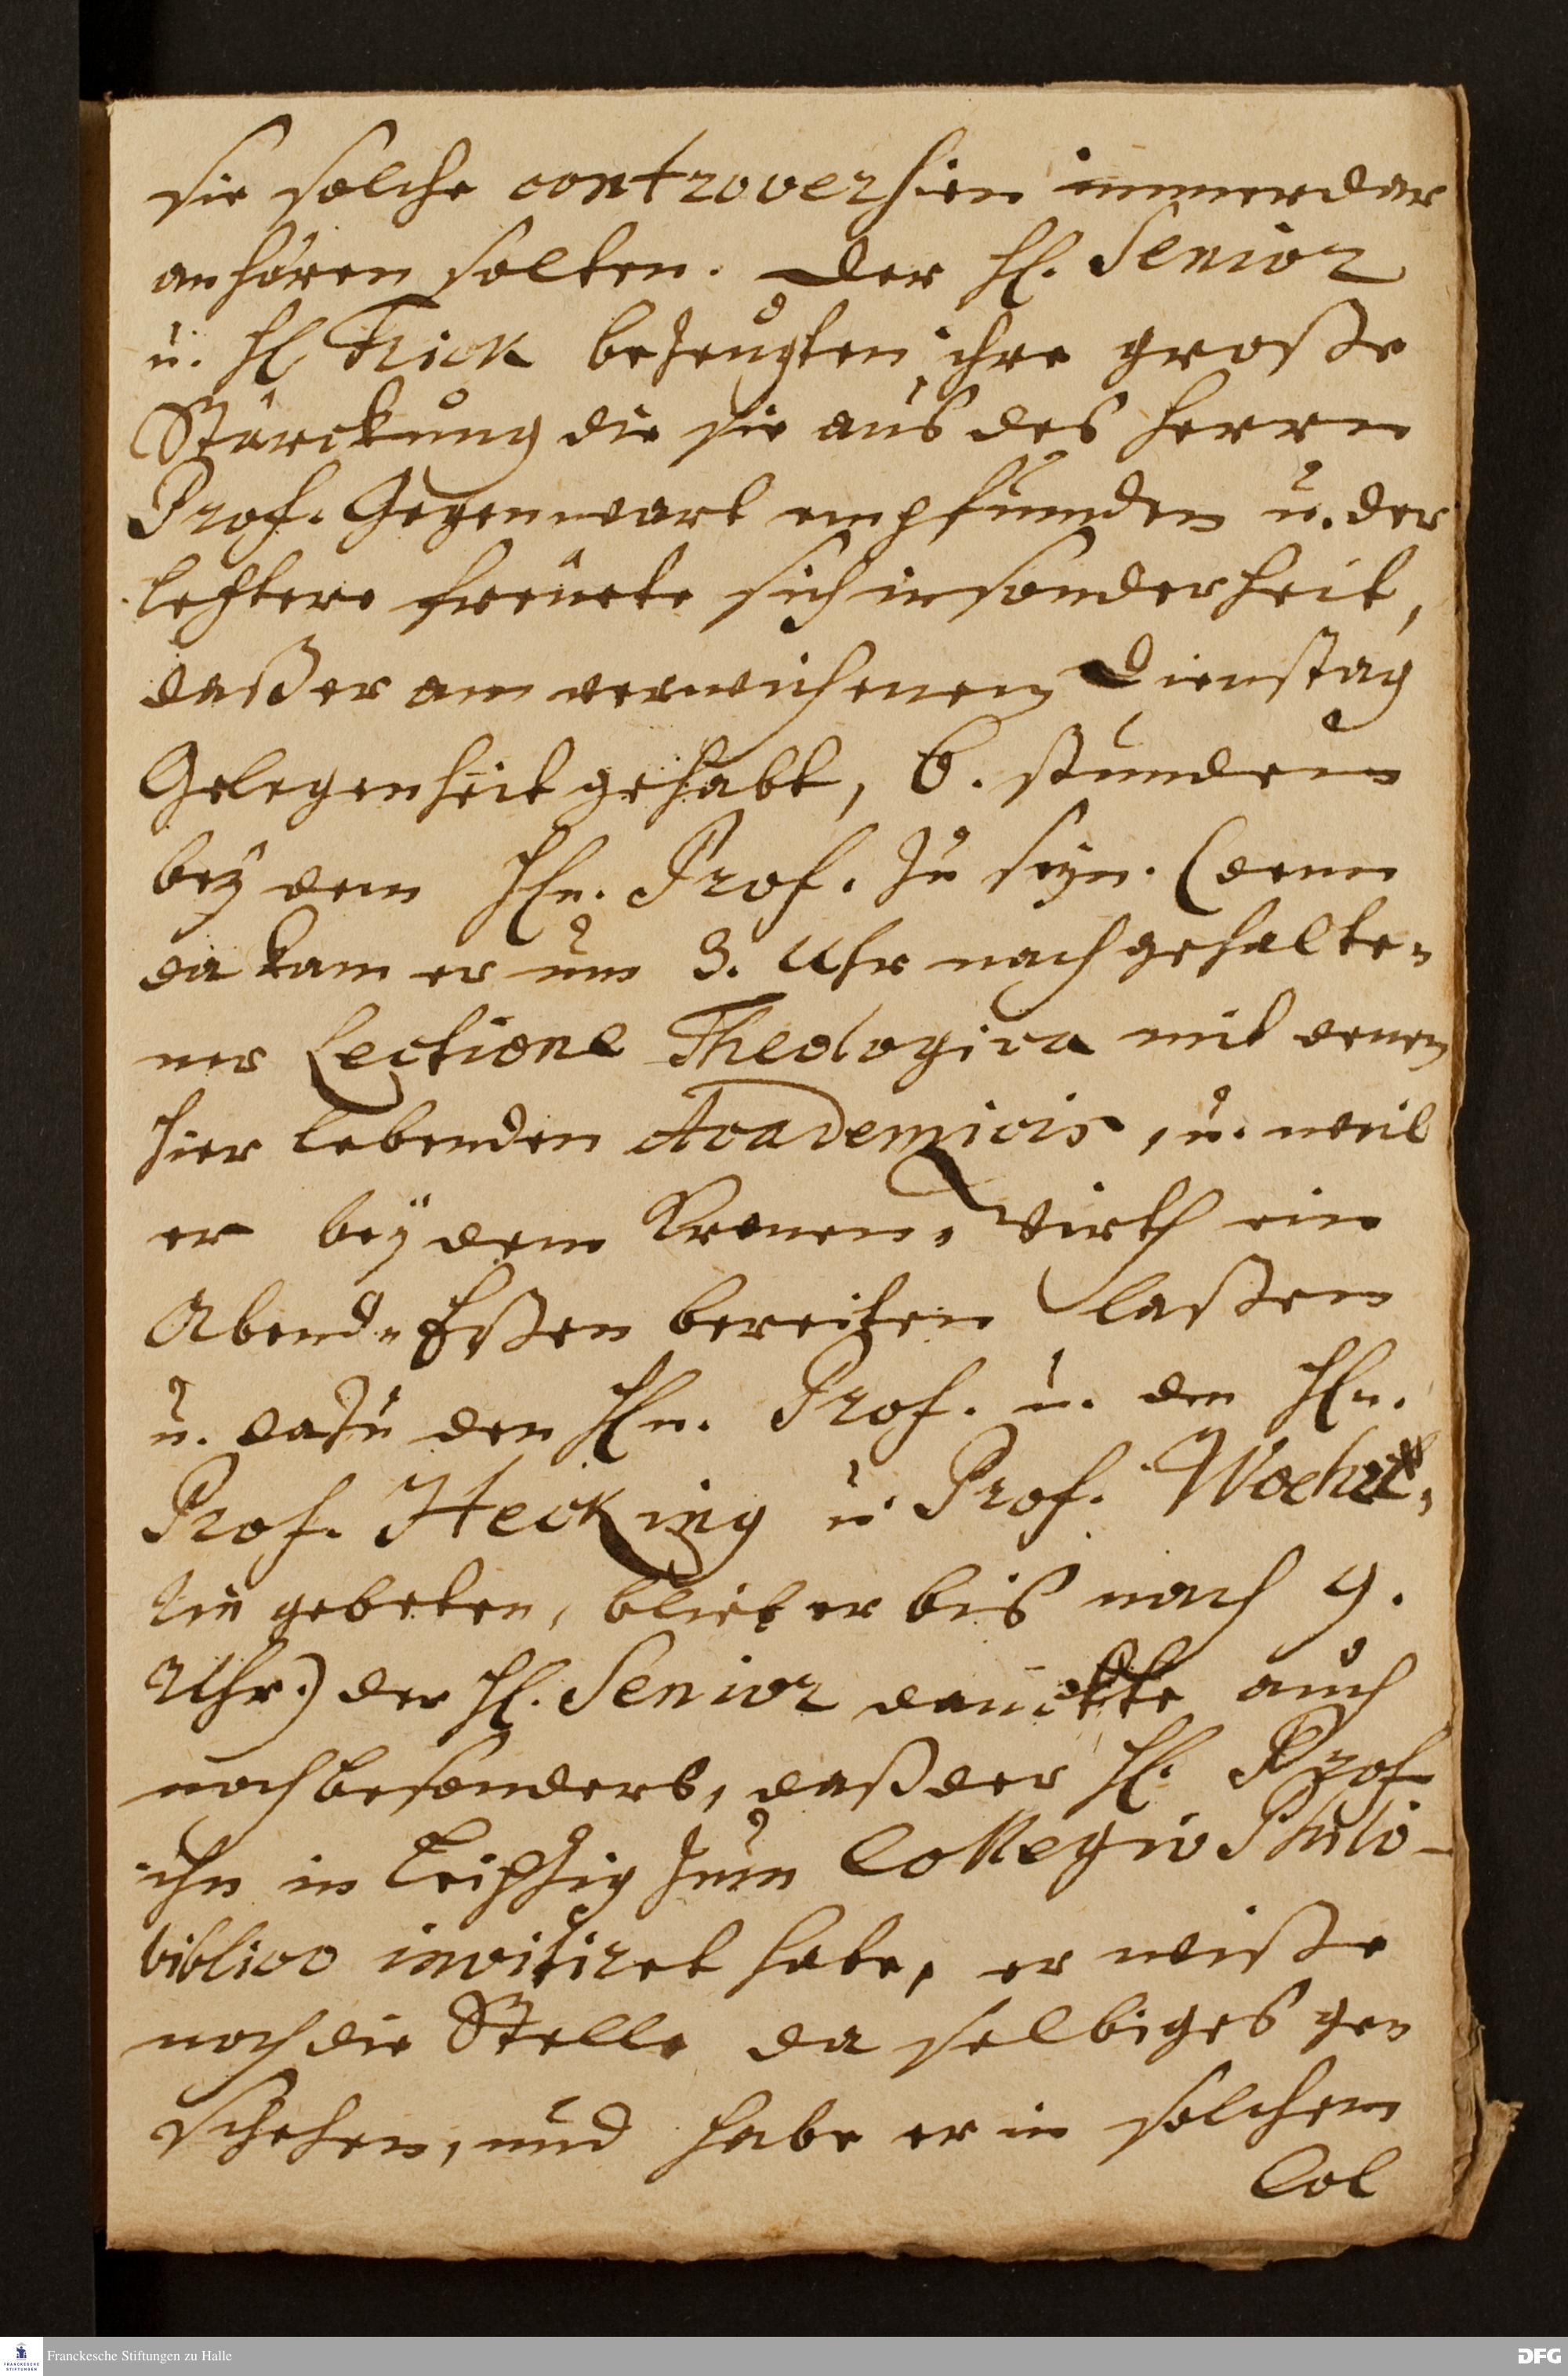 sie solche controversien immerdar
anhören solten. Der H. Senior
u. H. Frick bezeugten ihre große
Stärckung die sie aus des Herrn
Prof. Gegenwart empfunden u. der
letztere freuete sich insonderheit,
daß er am verwichenen Dienstag
Gelegenheit gehabt, 6. stunden
bey dem Hn. Prof. zu seyn. (denn
da kam er um 3. Uhr nach gehalte-
ner Lectione Theologica mit denen
hier lebenden Academicis, u. weil
er bey dem Kronen-Wirth ein
Abend-Eßen bereiten laßen
u. dazu den Hn. Prof. u. den Hn.
Prof. Hecking u. Prof.
gebeten, blieb er bis nach 9.
Uhr.) der H. Senior danckte auch
noch besonders, daß der H. Prof.
ihn in Leipzig zum Collegio Philo-
biblico invitiret habe, er wiße
noch die Stelle da selbiges ge-
schehen, und habe er in solchem
Col
Franckesche Stiftungen zu Halle
FRANCKESCHE STIFTUNGEN
DFG